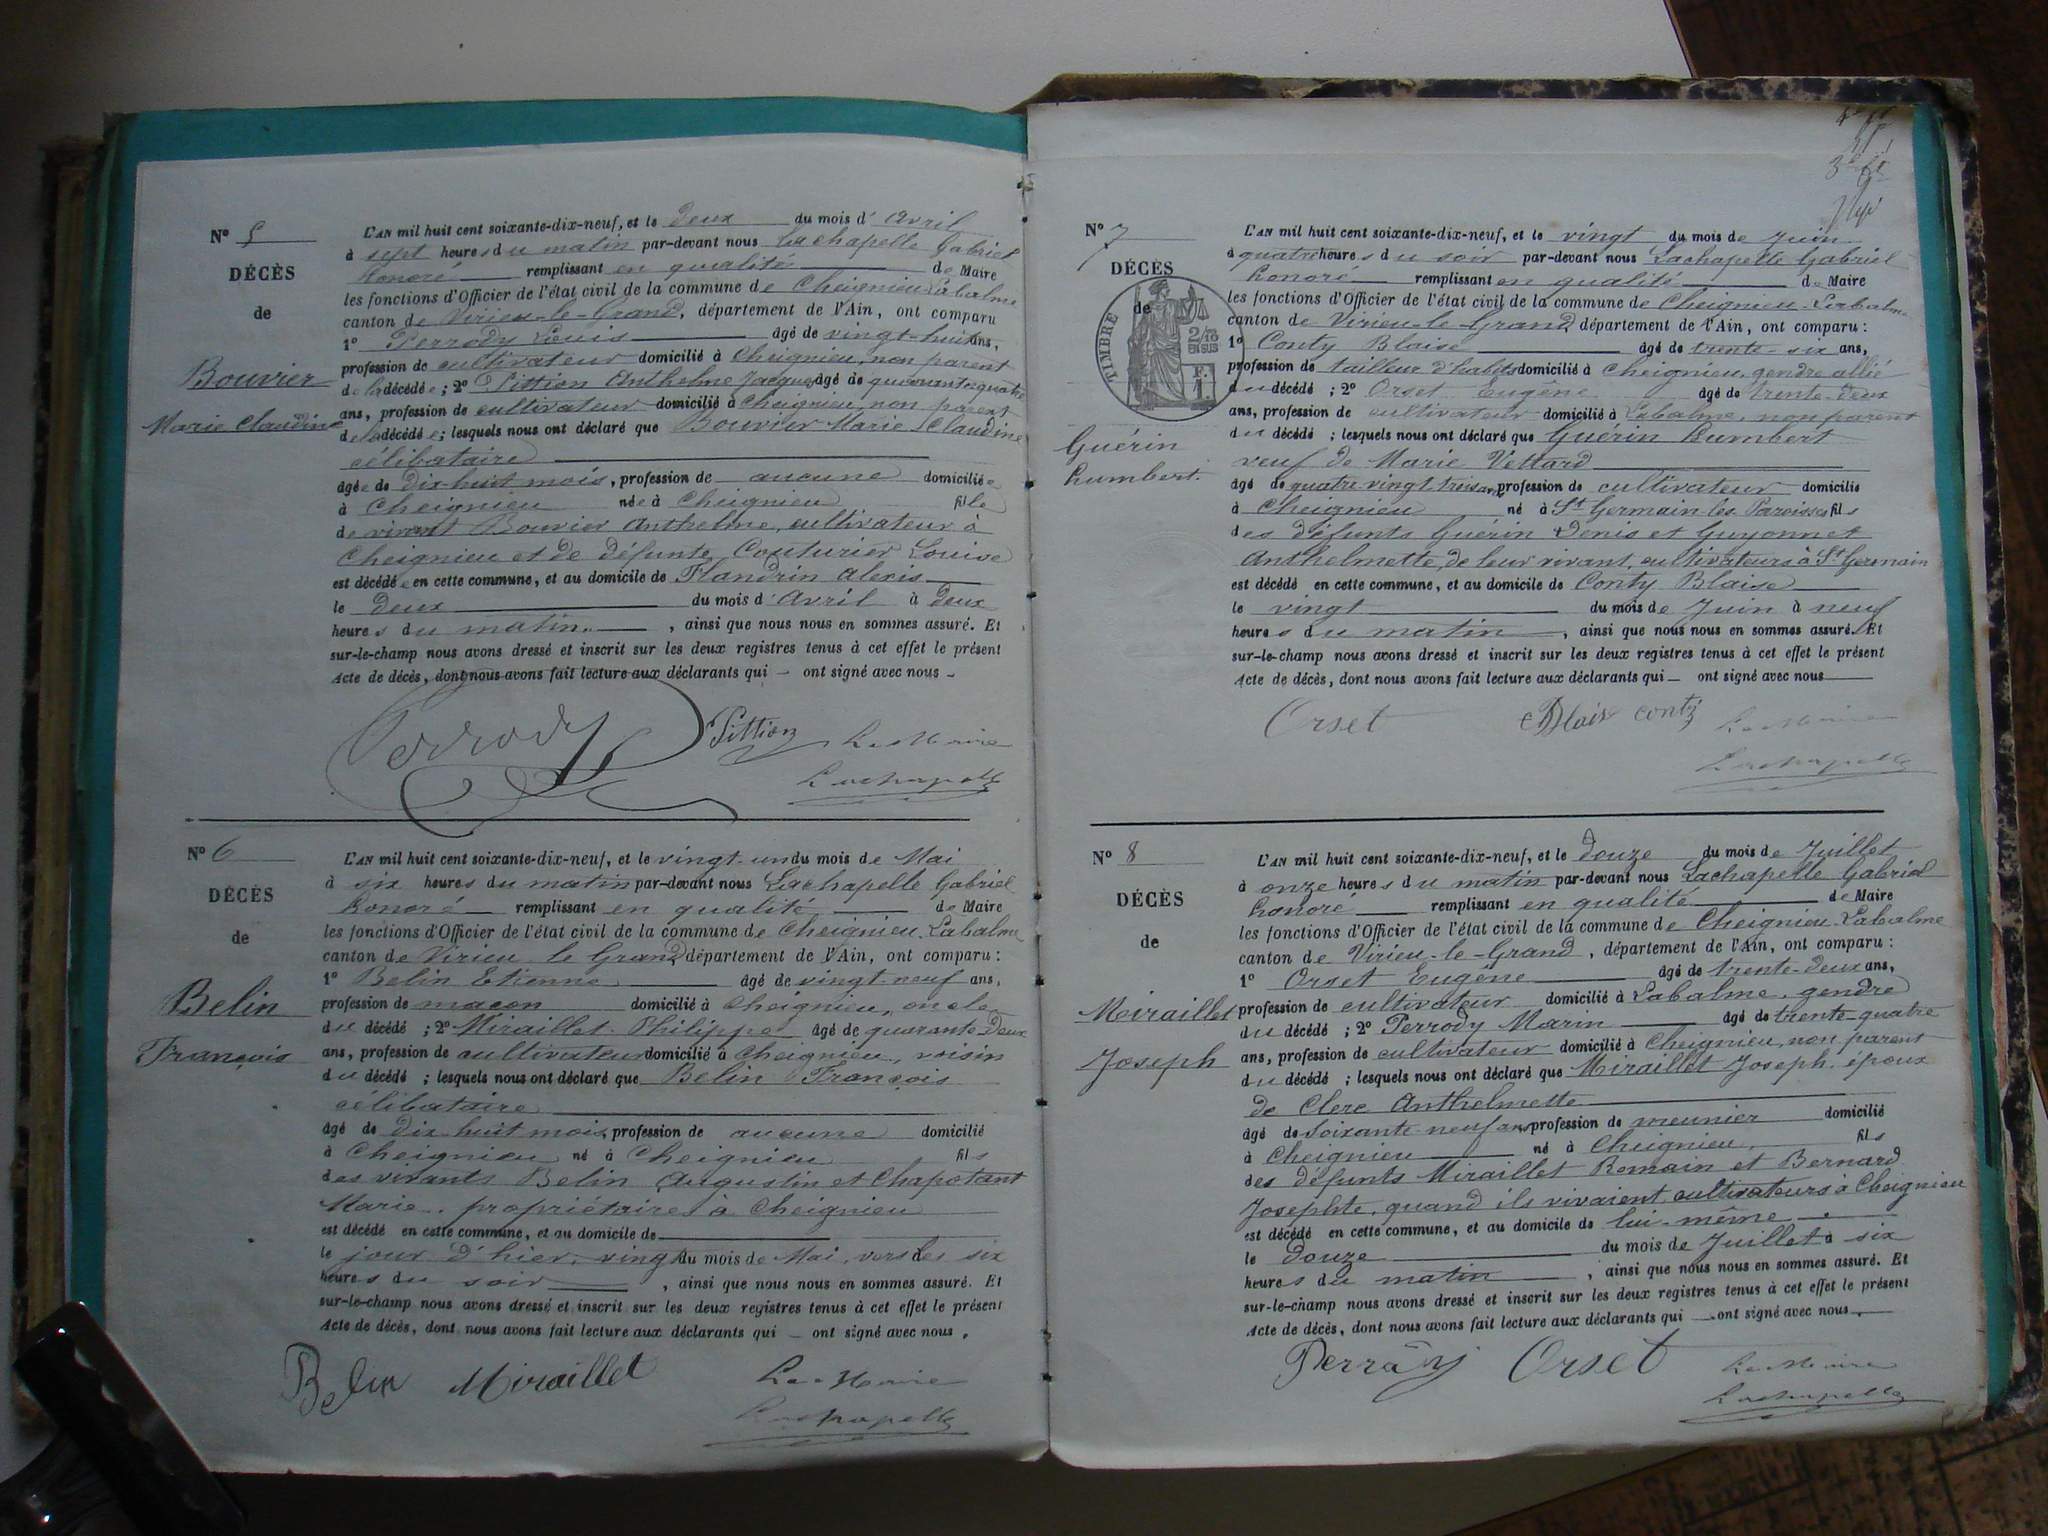 N° 5
DÉCÈS
de
Bouvier
Marie Claudine
L'AN mil huit cent soixante-dix-neuf, et le deux du mois d'avril
à sept heures du matin par-devant nous Lachapelle Gabriel
honoré remplissant en qualité de Maire
les fonctions d'Officier de l'état civil de la commune de Cheignieu-Labalme
canton de Virieu-le-Grand, département de l'Ain, ont comparu
1° Perrody Louis âgé de vingt-huit ans,
profession de cultivateur domicilié à Cheignieu, non parent
de la décédée ; 2° Pittion Anthelme Jacques âgé de quarante quatre
ans, profession de cultivateur domicilié à Cheignieu non parent
de la décédée ; lesquels nous ont déclaré que Bouvier Marie Claudine
célibataire
âgée de dix-huit mois, profession de aucune domiciliée
à Cheignieu née à Cheignieu fille
de vivant Bouvier Anthelme, cultivateur à
Cheignieu et de défunte Couturier Louise
est décédée en cette commune, et au domicile de Flandrin Alexis
le deux du mois d'avril à deux
heures du matin, ainsi que nous nous en sommes assuré. Et
sur-le-champ nous avons dressé et inscrit sur les deux registres tenus à cet effet le présent
Acte de décès, dont nous avons fait lecture aux déclarants qui — ont signé avec nous
Perrody Pittion Le Maire
Lachapelle
N° 6
DÉCÈS
de
Belin
François
L'AN mil huit cent soixante-dix-neuf, et le vingt-un du mois de Mai
à six heures du matin par-devant nous Lachapelle Gabriel
honoré remplissant en qualité de Maire
les fonctions d'Officier de l'état civil de la commune de Cheignieu Labalme
canton de Virieu le Grand département de l'Ain, ont comparu :
1° Belin Etienne âgé de vingt-neuf ans,
profession de maçon domicilié à Cheignieu, oncle
du décédé ; 2° Miraillet Philippe âgé de quarante deux
ans, profession de cultivateur domicilié à Cheignieu, voisin
du décédé ; lesquels nous ont déclaré que Belin François
célibataire
âgé de dix-huit mois profession de aucune domicilié
à Cheignieu né à Cheignieu fils
des vivants Belin Augustin et Chapotant
Marie, propriétaires à Cheignieu
est décédé en cette commune, et au domicile de
le jour d'hier, vingt du mois de Mai, vers les six
heures du soir, ainsi que nous nous en sommes assuré. Et
sur-le-champ nous avons dressé et inscrit sur les deux registres tenus à cet effet le présent
Acte de décès, dont nous avons fait lecture aux déclarants qui — ont signé avec nous.
Belin Miraillet Le Maire
Lachapelle
N° 7
DÉCÈS
de
TIMBRE
2/10
EN SUS
F.
1.
Guérin
humbert.
L'AN mil huit cent soixante-dix-neuf, et le vingt du mois de Juin
à quatre heures du soir par-devant nous Lachapelle Gabriel
honoré remplissant en qualité de Maire
les fonctions d'Officier de l'état civil de la commune de Cheignieu-Labalme
canton de Virieu-le-Grand département de l'Ain, ont comparu :
1° Conty Blaise âgé de trente-six ans,
profession de tailleur d'habits domicilié à Cheignieu, gendre allié
du décédé ; 2° Orset Eugène âgé de trente-deux
ans, profession de cultivateur domicilié à Labalme, non parent
du décédé ; lesquels nous ont déclaré que Guérin humbert
veuf de Marie Vettard
âgé de quatre-vingt-trois ans profession de cultivateur domicilié
à Cheignieu né à St Germain-les-Paroisses fils
des défunts Guérin Denis et Guyonnet
Anthelmette, de leur vivant, cultivateurs à St Germain
est décédé en cette commune, et au domicile de Conty Blaise
le vingt du mois de Juin à neuf
heures du matin, ainsi que nous nous en sommes assuré. Et
sur-le-champ nous avons dressé et inscrit sur les deux registres tenus à cet effet le présent
Acte de décès, dont nous avons fait lecture aux déclarants qui — ont signé avec nous
Orset Blais conty Le Maire
Lachapelle
N° 8
DÉCÈS
de
Miraillet
Joseph
L'AN mil huit cent soixante-dix-neuf, et le douze du mois de Juillet
à onze heures du matin par-devant nous Lachapelle Gabriel
honoré remplissant en qualité de Maire
les fonctions d'Officier de l'état civil de la commune de Cheignieu-Labalme
canton de Virieu-le-Grand, département de l'Ain, ont comparu :
1° Orset Eugène âgé de trente-deux ans,
profession de cultivateur domicilié à Labalme, gendre
du décédé ; 2° Perrody Marin âgé de trente-quatre
ans, profession de cultivateur domicilié à Cheignieu, non parent
du décédé ; lesquels nous ont déclaré que Miraillet Joseph, époux
de Clerc Anthelmette
âgé de soixante-neuf ans profession de meunier domicilié
à Cheignieu né à Cheignieu, fils
des défunts Miraillet Romain et Bernard
Josephte, quand ils vivaient cultivateurs à Cheignieu
est décédé en cette commune, et au domicile de lui-même
le douze du mois de Juillet à six
heures du matin, ainsi que nous nous en sommes assuré. Et
sur-le-champ nous avons dressé et inscrit sur les deux registres tenus à cet effet le présent
Acte de décès, dont nous avons fait lecture aux déclarants qui — ont signé avec nous.
Perrody Orset Le Maire
Lachapelle